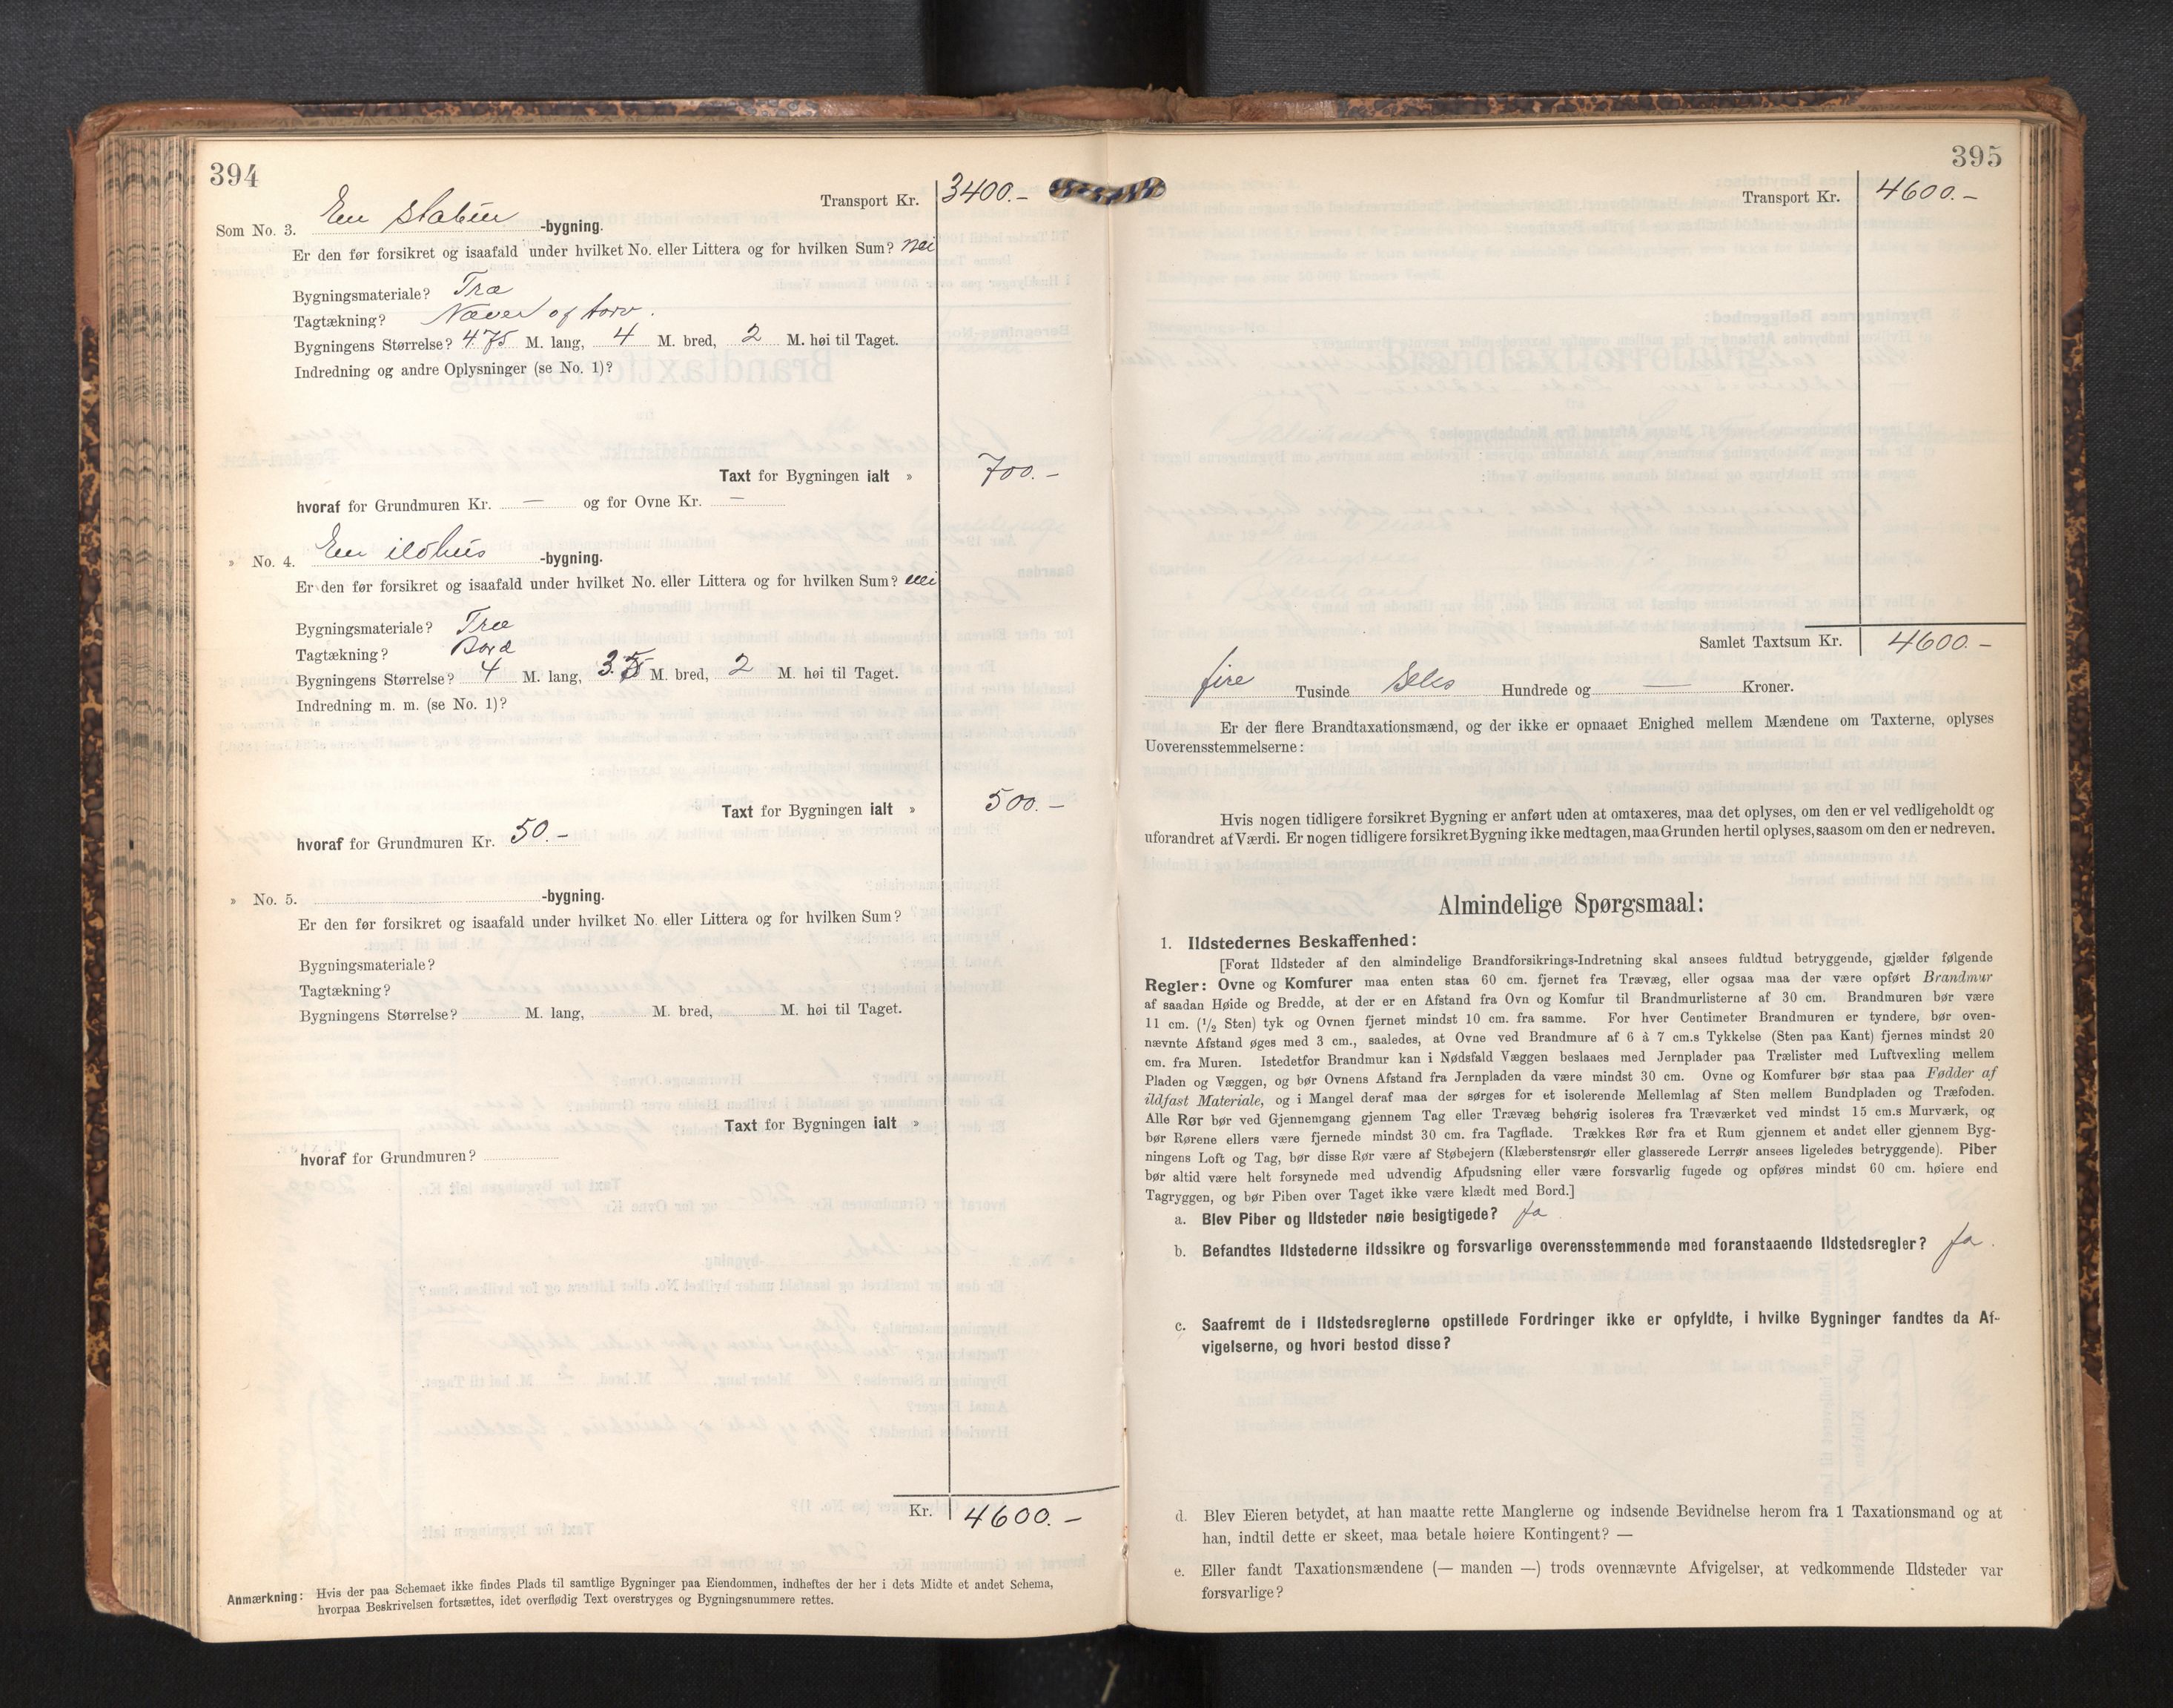 394
Transport Kr. 3400.-
Som No. 3. En stabur -bygning.
Er den før forsikret og isaafald under hvilket No. eller Littera og for hvilken Sum? nei
Bygningsmateriale? Træ
Tagtækning? Næver og torv.
Bygningens Størrelse? 4.75 M. lang, 4 M. bred, 2 M. høi til Taget.
Indredning og andre Oplysninger (se No. 1)?
Taxt for Bygningen ialt » 700.-
hvoraf for Grundmuren Kr. — og for Ovne Kr. —
» No. 4. En ildhus -bygning.
Er den før forsikret og isaafald under hvilket No. eller Littera og for hvilken Sum? nei
Bygningsmateriale? Træ
Tagtækning? Bord
Bygningens Størrelse? 4 M. lang, 3.75 M. bred, 2 M. høi til Taget.
Indredning m. m. (se No. 1)?
Taxt for Bygningen ialt » 500.-
hvoraf for Grundmuren Kr. 50.-
» No. 5. -bygning.
Er den før forsikret og isaafald under hvilket No. eller Littera og for hvilken Sum?
Bygningsmateriale?
Tagtækning?
Bygningens Størrelse? M. lang, M. bred, M. høi til Taget.
Taxt for Bygningen ialt »
hvoraf for Grundmuren?
Kr. 4600.-
Anmærkning: Hvis der paa Schemaet ikke findes Plads til samtlige Bygninger paa Eiendommen, indheftes der her i dets Midte et andet Schema,
hvorpaa Beskrivelsen fortsættes, idet overflødig Text overstryges og Bygningsnummere rettes.
395
Transport Kr. 4600.-
Samlet Taxtsum Kr. 4600.-
fire Tusinde Seks Hundrede og — Kroner.
Er der flere Brandtaxationsmænd, og der ikke er opnaaet Enighed mellem Mændene om Taxterne, oplyses
Uoverensstemmelserne:
Hvis nogen tidligere forsikret Bygning er anført uden at omtaxeres, maa det oplyses, om den er vel vedligeholdt og
uforandret af Værdi. Er nogen tidligere forsikret Bygning ikke medtagen, maa Grunden hertil oplyses, saasom om den er nedreven.
Almindelige Spørgsmaal:
1. Ildstedernes Beskaffenhed:
[Forat Ildsteder af den almindelige Brandforsikrings-Indretning skal ansees fuldtud betryggende, gjælder følgende
Regler: Ovne og Komfurer maa enten staa 60 cm. fjernet fra Trævæg, eller ogsaa maa der være opført Brandmur
af saadan Høide og Bredde, at der er en Afstand fra Ovn og Komfur til Brandmurlisterne af 30 cm. Brandmuren bør være
11 cm. (1/2 Sten) tyk og Ovnen fjernet mindst 10 cm. fra samme. For hver Centimeter Brandmuren er tyndere, bør oven-
nævnte Afstand øges med 3 cm., saaledes, at Ovne ved Brandmure af 6 à 7 cm.s Tykkelse (Sten paa Kant) fjernes mindst 20
cm. fra Muren. Istedetfor Brandmur kan i Nødsfald Væggen beslaaes med Jernplader paa Trælister med Luftvexling mellem
Pladen og Væggen, og bør Ovnens Afstand fra Jernpladen da være mindst 30 cm. Ovne og Komfurer bør staa paa Fødder af
ildfast Materiale, og i Mangel deraf maa der sørges for et isolerende Mellemlag af Sten mellem Bundpladen og Træfoden.
Alle Rør bør ved Gjennemgang gjennem Tag eller Trævæg behørig isoleres fra Træværket ved mindst 15 cm.s Murværk, og
bør Rørene ellers være fjernede mindst 30 cm. fra Tagflade. Trækkes Rør fra et Rum gjennem et andet eller gjennem Byg-
ningens Loft og Tag, bør disse Rør være af Støbejern (Klæberstensrør eller glasserede Lerrør ansees ligeledes betryggende). Piber
bør altid være helt forsynede med udvendig Afpudsning eller være forsvarlig fugede og opføres mindst 60 cm. høiere end
Tagryggen, og bør Piben over Taget ikke være klædt med Bord.]
a. Blev Piber og Ildsteder nøie besigtigede? ja
b. Befandtes Ildstederne ildssikre og forsvarlige overensstemmende med foranstaaende Ildstedsregler? ja.
c. Saafremt de i Ildstedsreglerne opstillede Fordringer ikke er opfyldte, i hvilke Bygninger fandtes da Af-
vigelserne, og hvori bestod disse?
d. Blev Eieren betydet, at han maatte rette Manglerne og indsende Bevidnelse herom fra 1 Taxationsmand og at
han, indtil dette er skeet, maa betale høiere Kontingent? —
e. Eller fandt Taxationsmændene (— manden —) trods ovennævnte Afvigelser, at vedkommende Ildsteder var
forsvarlige?